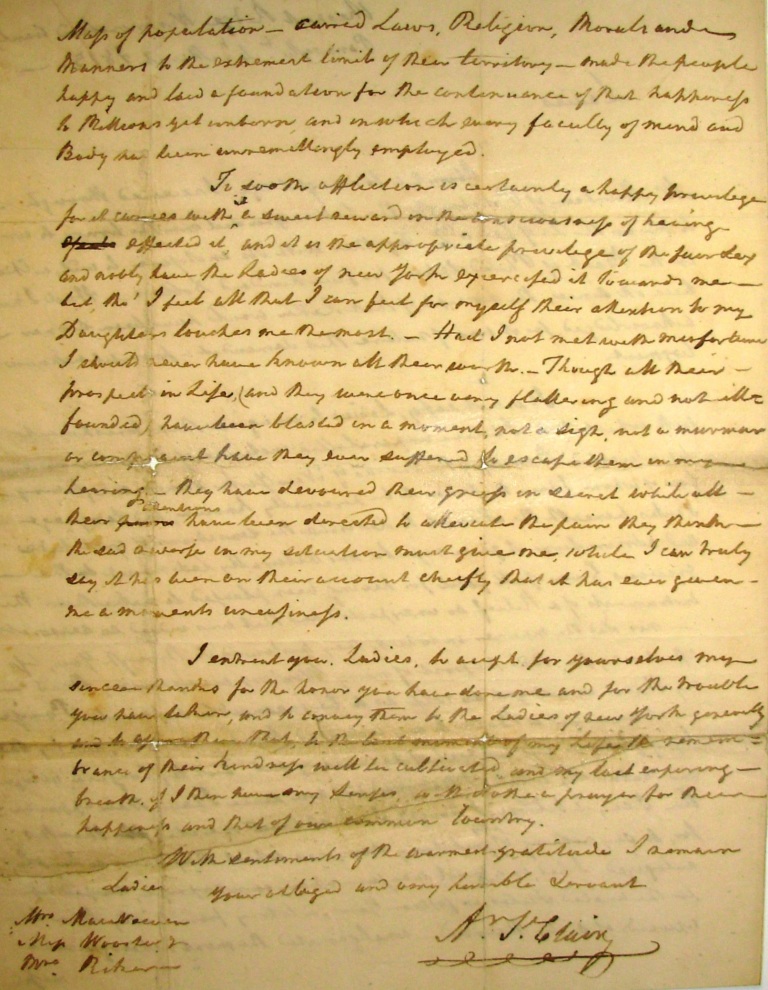 Mass of population — carried Laws, Religion, Morals and
Manners to the extremest limit of their territory — made the people
happy and laid a foundation for the continuance of that happiness
to Millions yet unborn, and in which every faculty of mind and
Body has been unremittingly employed.
To sooth affliction is certainly a happy privilege
for it carries with it a sweet reward in the consciousness of having
effected it, and it is the appropriate privilege of the fair Sex
and nobly have the Ladies of new York exercised it towards me —
but, tho' I feel all that I can feel for myself their attention to my
Daughters touches me the most. — Had I not met with misfortune
I should never have known all their worth. — Though all their —
prospects in Life, (and they were once very flattering and not ill=
founded) have been blasted in a moment, not a sigh, not a murmur
or complaint have they ever suffered to escape them in my
hearing — they have devoured their griefs in secret while all —
their attentions have been directed to alleviate the pain they think —
the sad reverse in my situation must give me, while I can truly
say it has been on their account chiefly that it has ever given —
me a moments uneasiness.
I entreat you, Ladies, to accept for yourselves my
sincere thanks for the honor you have done me and for the trouble
you have taken, and to convey them to the Ladies of new York generally
and to assure them that, to the last moment of my Life the remem=
brance of their kindness will be cultivated, and my last expiring —
breath, if I then have my Senses, will a prayer for their
happiness and that of our common Country.
With sentiments of the warmest gratitude I remain
Ladies
your obliged and very humble Servant
Ar. St. Clair
Mrs
Miss
Mrs Riker